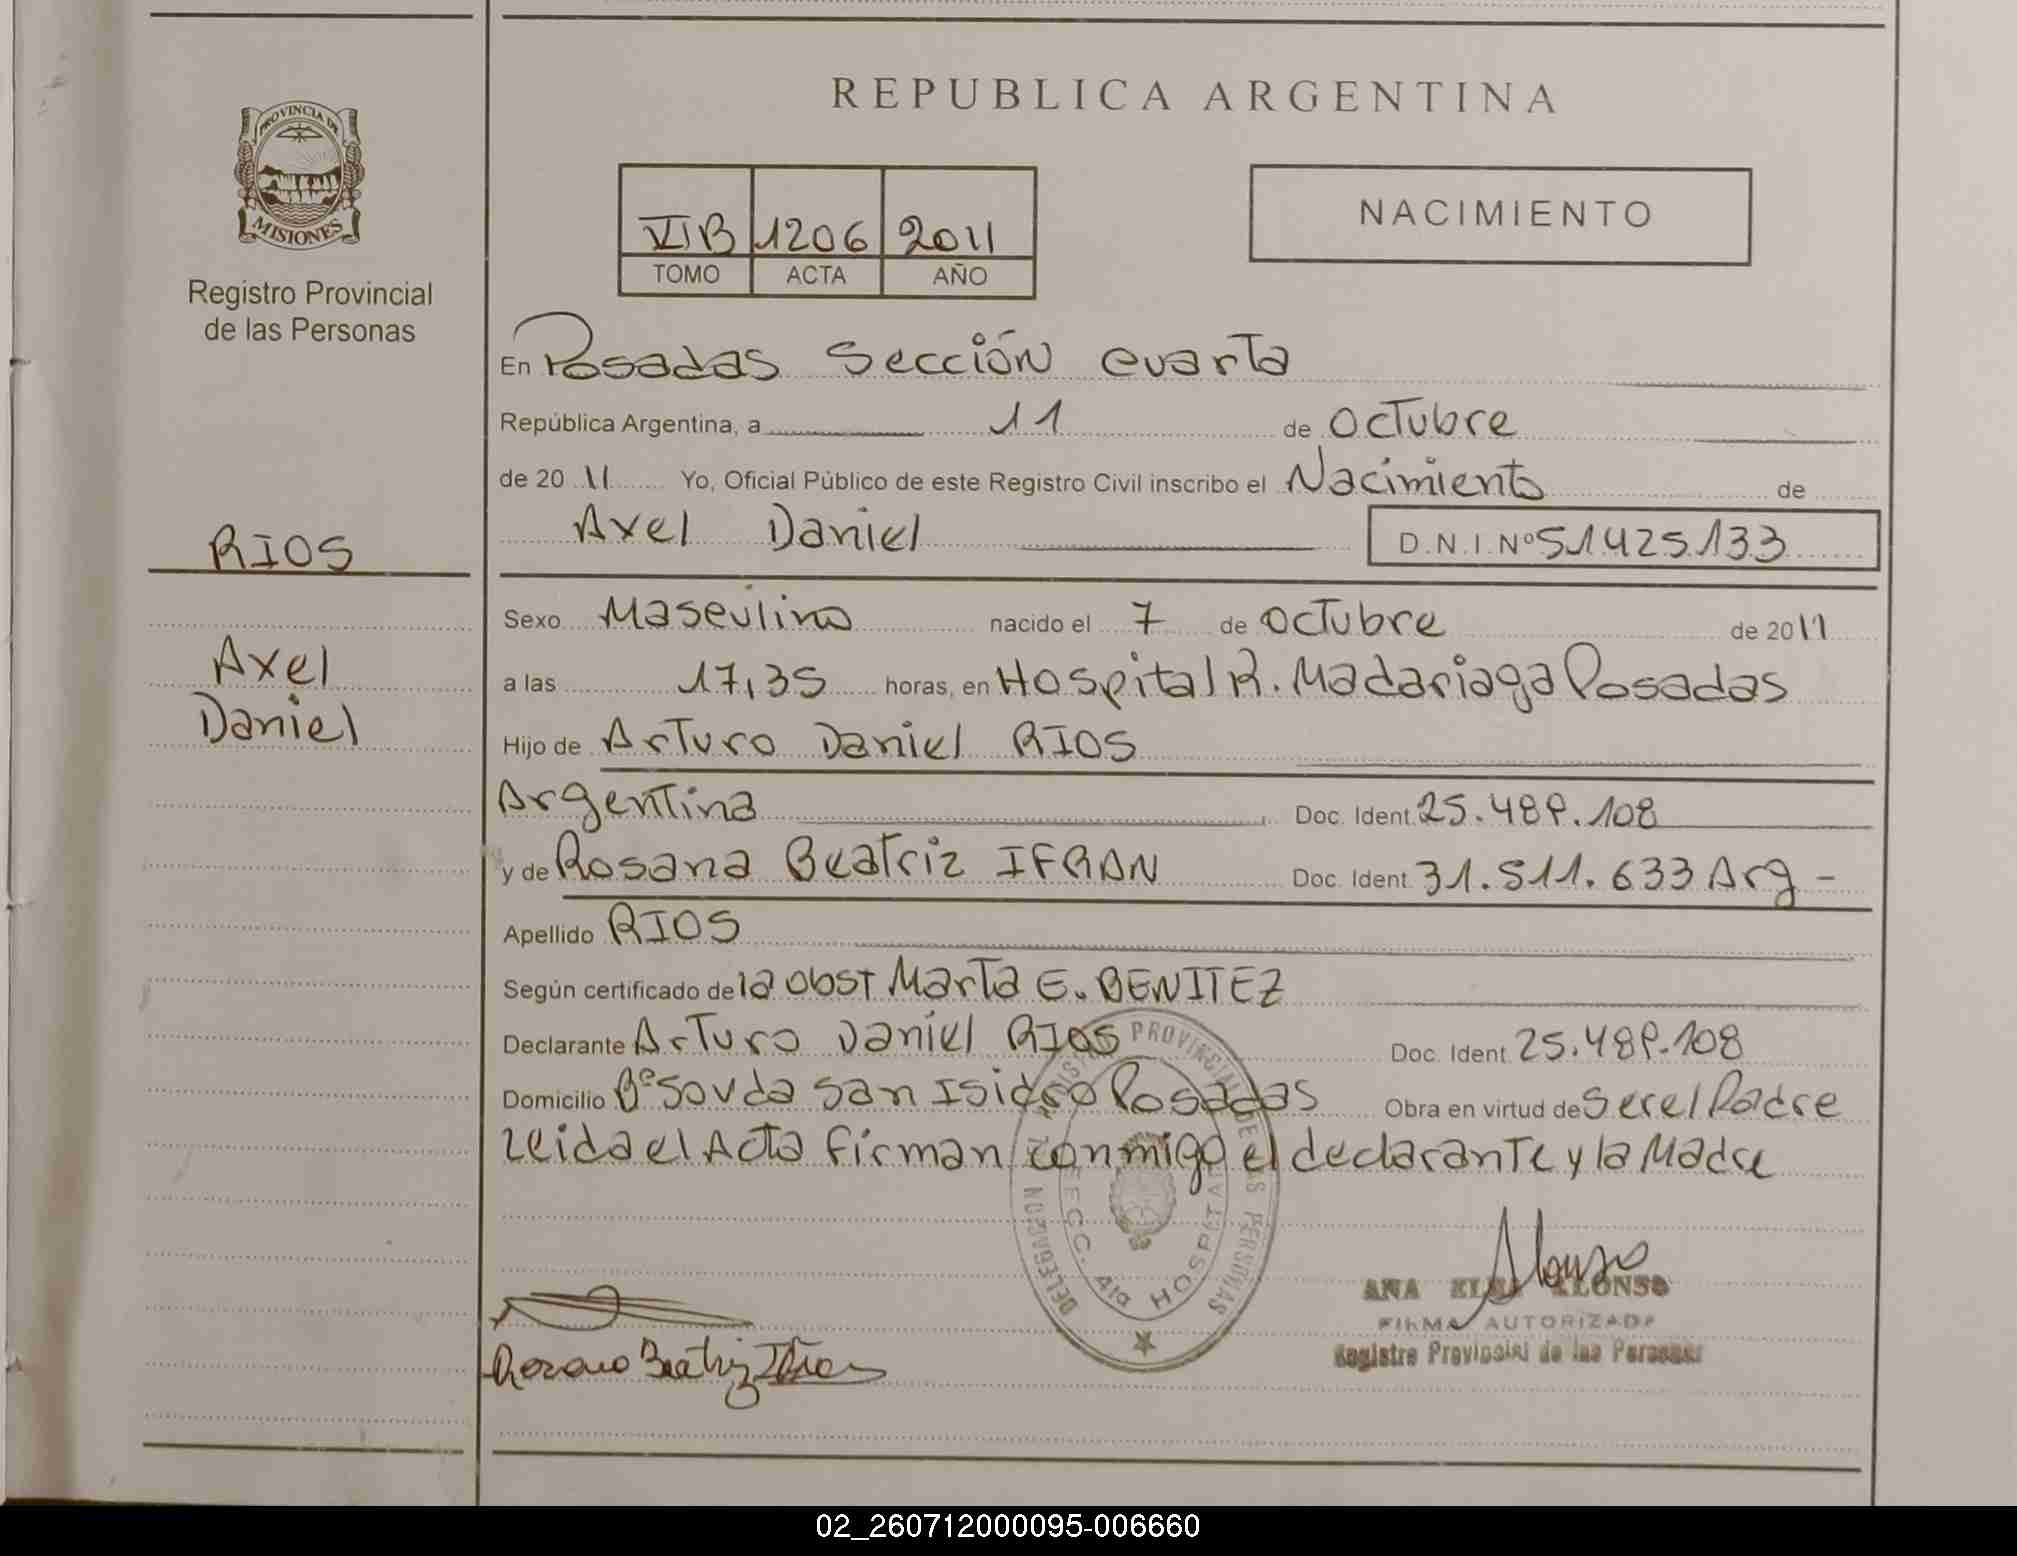 REPUBLICA ARGENTINA
PROVINCIA DE
MISIONES
Registro Provincial
de las Personas
VI B 1206 2011
TOMO ACTA AÑO
NACIMIENTO
En Posadas Sección cuarta
República Argentina, a 11 de Octubre
de 20 11 Yo, Oficial Público de este Registro Civil inscribo el Nacimiento de
Axel Daniel D.N.I. Nº 51425133
RIOS
Axel
Daniel
Sexo Masculino nacido el 7 de Octubre de 2011
a las 17,35 horas, en Hospital R. Madariaga Posadas
Hijo de Arturo Daniel RIOS
Argentina Doc. Ident. 25.489.108
y de Rosana Beatriz IFRAN Doc. Ident. 31.511.633 Arg -
Apellido RIOS
Según certificado de la Obst Marta E. BENITEZ
Declarante Arturo Daniel RIOS Doc. Ident. 25.489.108
Domicilio Bº San Isidro Posadas Obra en virtud de Ser el Padre
Leida el Acta firman conmigo el declarante y la Madre
PROVINCIAL DE LAS PERSONAS
DELEGACION
SECC. 4ta HOSPITAL
Alonso
ANA ALONSO
FIRMA AUTORIZADA
Registro Provincial de las Personas
Beatriz
02_260712000095-006660